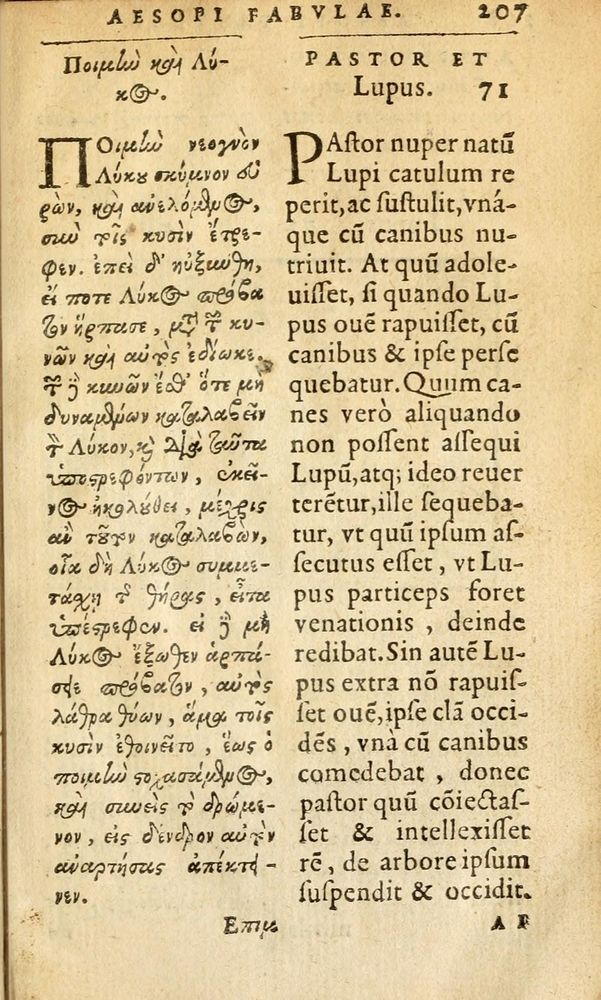 AESOPI FABVLAE. 207
Ποιμὼν καὶ Λύ-
κος.
ΠΟιμὼν νεογνὸν
Λύκου σκύμνον εὑ
ρὼν, καὶ ἀνελόμενος,
σιω τοῖς κυσὶν ἔτρε-
φεν. ἐπεὶ δ' ηὐξιώθη,
εἴ ποτε Λύκος πρόβα
τον ἥρπασε, μετὰ τῶν κυ-
νῶν καὶ αὐτὸς ἐδίωκε.
τῶν δὲ κιωῶν ἔσθ' ὅτε μὴ
δυναμένων καταλαβεῖν
τὸν Λύκον, καὶ διὰ ταῦτα
ὑποστρεφόντων, ἐκεῖ-
νος ἠκολούθει, μέχρις
ἂν τοῦτον καταλαβὼν,
οἷα δὴ Λύκος συμμε-
τάσχῃ τῆς θήρας, εἶτα
ὑπέστρεφεν. εἰ δὲ μὴ
Λύκος ἔξωθεν ἁρπά-
σειε πρόβατον, αὐτὸς
λάθρα θύων, ἅμα τοῖς
κυσὶν ἐθοινεῖτο, ἕως ὁ
ποιμὼν στοχασάμενος,
καὶ σιωεὶς τὸ δρώμε-
νον, εἰς δένδρον αὐτὸν
ἀναρτήσας ἀπέκτει-
νεν.
Επιμ
PASTOR ET
Lupus. 71
PAstor nuper natū
Lupi catulum re
perit, ac sustulit, vná-
que cū canibus nu-
triuit. At quū adole-
uisset, si quando Lu-
pus ouē rapuisset, cū
canibus & ipse perse
quebatur. Quum ca-
nes verò aliquando
non possent assequi
Lupū, atq; ideo reuer
terētur, ille sequeba-
tur, vt quū ipsum as-
secutus esset, vt Lu-
pus particeps foret
venationis, deinde
redibat. Sin autē Lu-
pus extra nō rapuis-
set ouē, ipse clā occi-
dēs, vnà cū canibus
comedebat, donec
pastor quū cōiectas-
set & intellexisset
rē, de arbore ipsum
suspendit & occidit.
AF